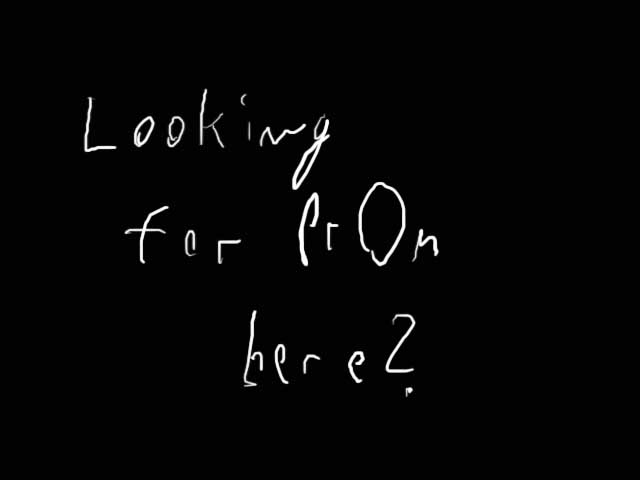 Looking
for Pr0n
here?